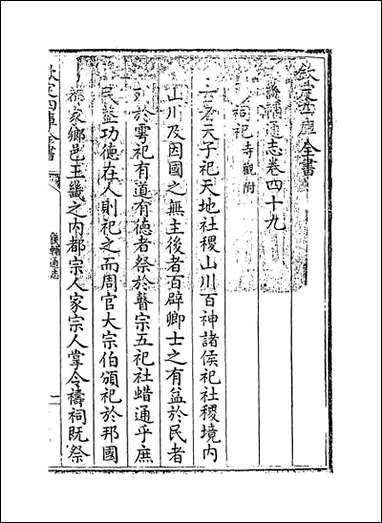 欽定四庫全書
畿輔通志卷四十九
祠祀 寺觀附
古者天子祀天地社稷山川百神諸侯祀社稷境內
山川及因國之無主後者百辟卿士之有益於民者
列於雩祀有道有德者祭於瞽宗五祀社蜡通乎庶
民益功德在人則祀之而周官大宗伯頒祀於邦國
都家鄉邑王畿之內都宗人家宗人掌令禱祠既祭
欽定四庫全書
畿輔通志
一